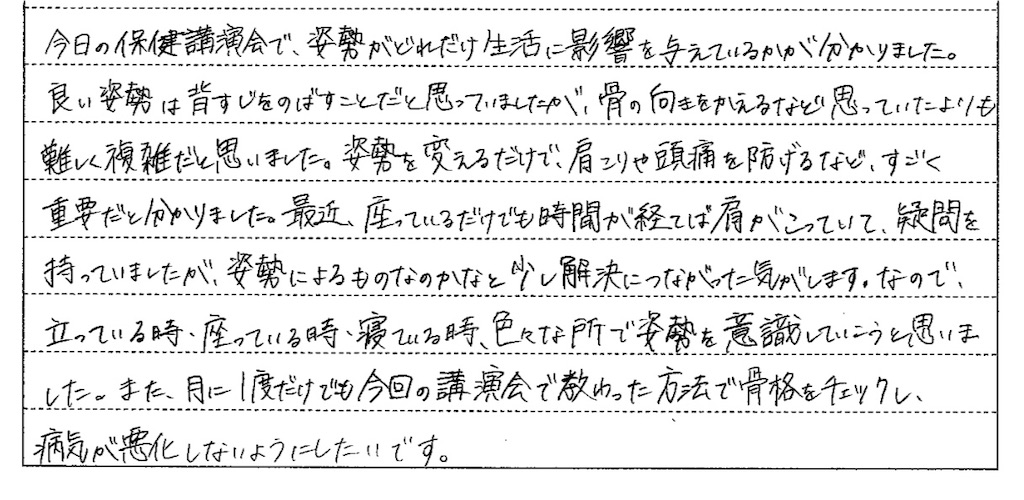 今日の保健講演会で、姿勢がどれだけ生活に影響を与えているかが分かりました。
良い姿勢は背すじをのばすことだと思っていましたが、骨の向きをかえるなど思っていたよりも
難しく複雑だと思いました。姿勢を変えるだけで、肩こりや頭痛を防げるなど、すごく
重要だと分かりました。最近、座っているだけでも時間が経てば肩がこっていて、疑問を
持っていましたが、姿勢によるものなのかなと少し解決につながった気がします。なので、
立っている時、座っている時、寝ている時、色々な所で姿勢を意識していこうと思いま
した。また、月に1度だけでも今回の講演会で教わった方法で骨格をチェックし、
病気が悪化しないようにしたいです。